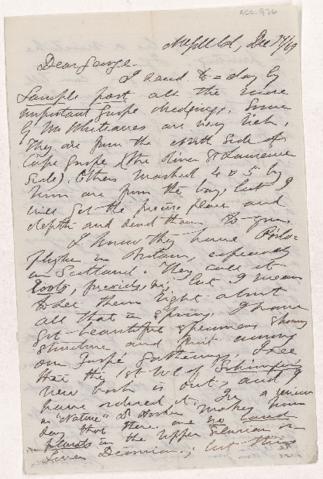 ACC. 976
McGill Col, Dec 7/69
Dear George.
I send to-day by
Sample post all the more
important Gaspe dredgings. Some
of Mr Whiteaves are very rich.
They are from the North Side of
Cape Gaspe (the River St Lawrence
Side). Others marked 4 & 5 by
him are from the bay, but I
will get the precise place and
depth and send them to you.
I know they have Psilo-
phyton in Britain, especially
in Scotland. They call it
roots, fucoids, &c, but I mean
to set them right about
all that in spring. I have
got beautiful specimens showing
structure and fruit among
our Gaspe gatherings. I see
that the 1st vol of Schimper's
new book is out, and I
have ordered it. In a review
in "Nature" Dr Hooker makes him
say that there are no land
plants in the Upper Silurian or
Lower Devonian; but this